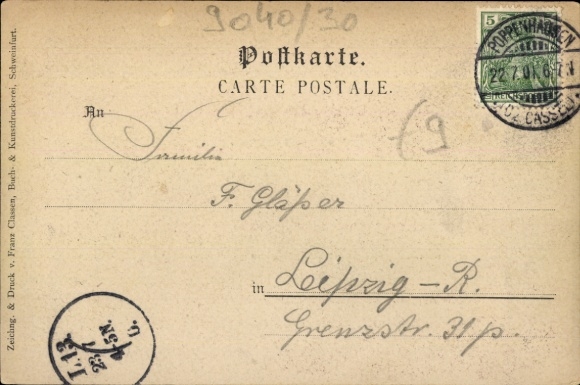 9040/30
Postkarte.
CARTE POSTALE.
5
POPPENHAUSEN
22.7.01. 6-7 N
(BZ. CASSEL)
REICH
An Familie
19
F. Gläßer
in Leipzig-R.
Grenzstr. 31 p.
L.13.
23/7
4-5N.
Zeichng. & Druck v. Franz Classen, Buch- & Kunstdruckerei, Schweinfurt.